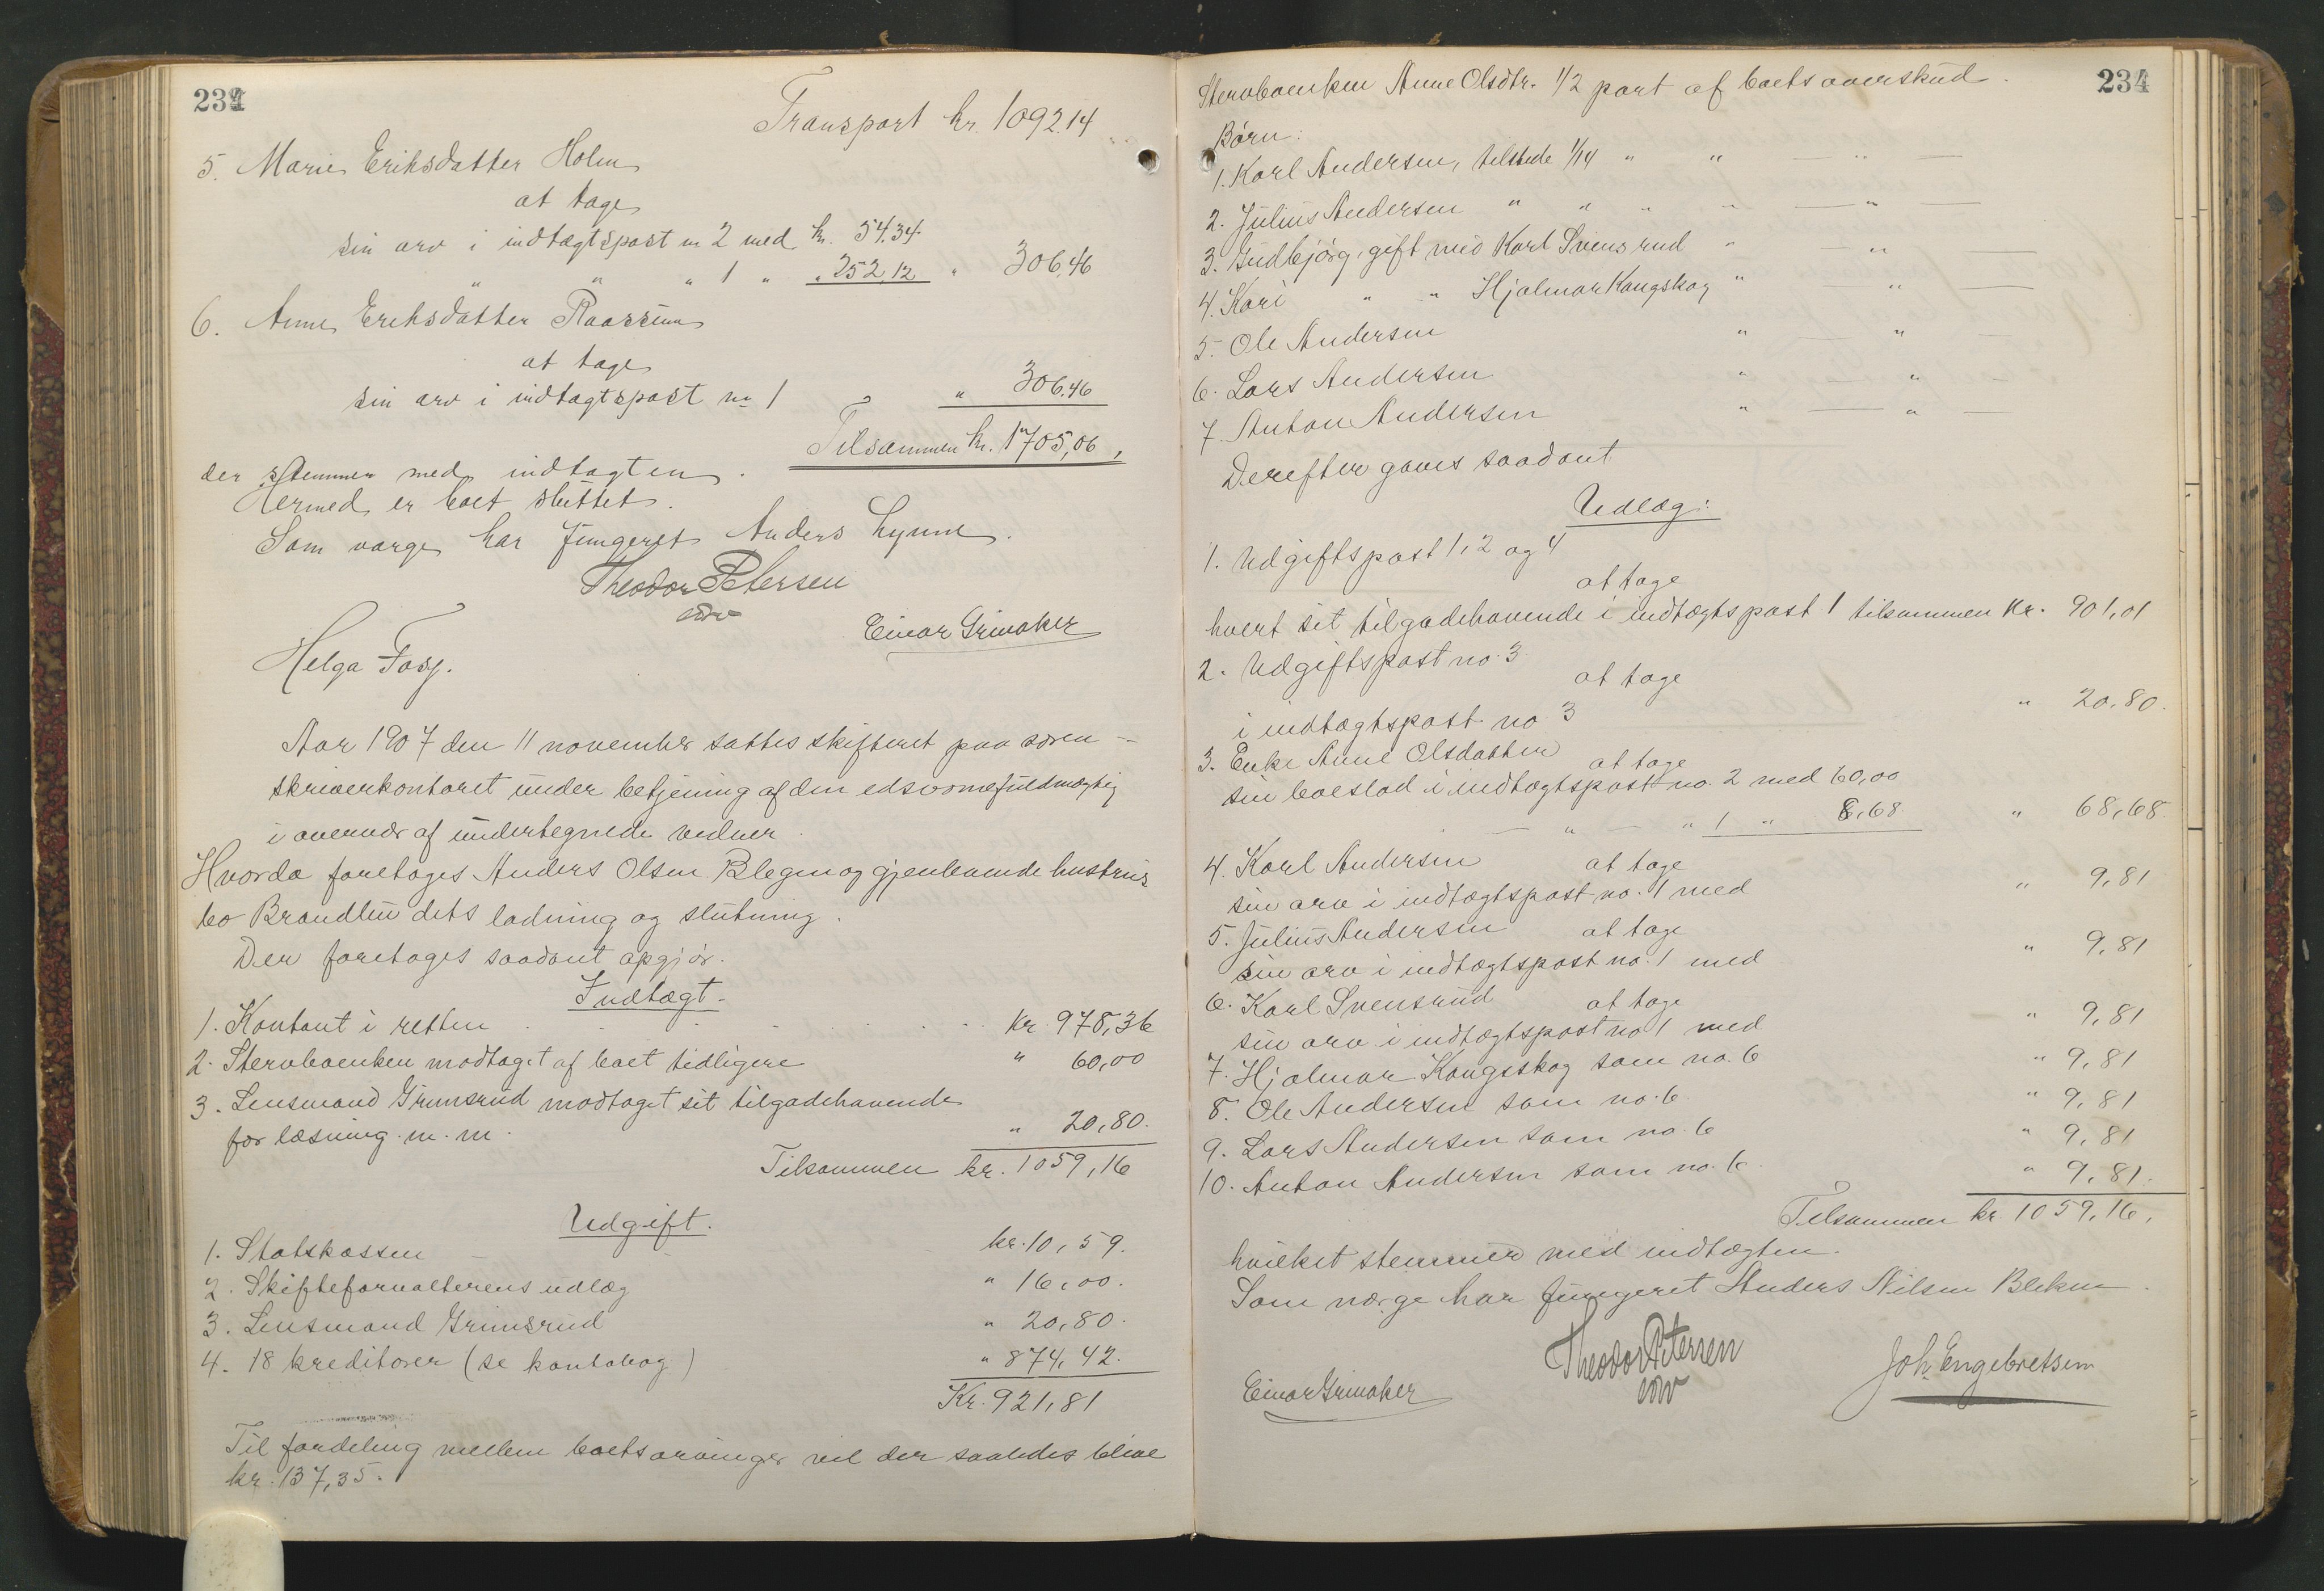 234
Transport kr. 1092.14
5. Marie Eriksdatter Holm
at tage
sin arv i indtægtspost no 2 med kr. 54.34.
" " " 1 " " 252,12 " 306,46
6. Anne Eriksdatter Raassum
at tage
sin arv i indtægtspost no 1 " 306.46
Tilsammen kr. 1705,06,
der stemmer med indtægten.
Hermed er boet sluttet.
Som værge har fungeret Anders Lynne.
Theodor Petersen
edsv
Einar Grinaker
Helga Fosf.
Aar 1907 den 11 november sattes skifteret paa soren-
skriverkontoret under betjening af den edsvorne fuldmægtig
i overvær af undertegnede vidner.
Hvorda foretoges Anders Olsen Blegen og gjenlevende hustrus
bo Brandbu dets ladning og slutning.
Der foretoges saadant opgjør.
Indtægt.
1. Kontant i retten . . . . . . . kr. 978,36
2. Stervboenken modtaget af boet tidligere " 60,00
3. Lensmand Grimsrud modtaget sit tilgodehavende
for læsning m. m. " 20,80.
Tilsammen kr. 1059,16
Udgift.
1. Statskassen kr. 10,59.
2. Skifteforvalterens udlæg " 16,00.
3. Lensmand Grimsrud " 20,80.
4. 18 kreditorer (se kontobog) " 874,42.
Kr. 921,81
Til fordeling mellem boets arvinger vil der saaledes blive
kr. 137,35.
234
Stervboenken Anne Olsdtr. 1/2 part af boets overskud.
Børn:
1. Karl Andersen, tilstede 1/14 " " — " —
2. Julius Andersen " " " " — " —
3. Gudbjørg, gift med Karl Svensrud " — " —
4. Kari " " Hjalmar Kongskog " — " —
5. Ole Andersen " — " —
6. Lars Andersen " — " —
7. Anton Andersen " — " —
Derefter gaves saadant
Udlæg:
1. Udgiftspost 1, 2 og 4
at tage
hvert sit tilgodehavende i indtægtspost 1 tilsammen kr. 901,01
2. Udgiftspost no. 3
at tage
i indtægtspost no 3 " 20,80.
3. Enke Anne Olsdatter at tage
sin boeslod i indtægtspost no. 2 med 60,00
— " — " 1 " 8,68 " 68,68.
4. Karl Andersen at tage
sin arv i indtægtspost no. 1 med " 9,81
5. Julius Andersen at tage
sin arv i indtægtspost no. 1 med " 9,81
6. Karl Svensrud at tage
sin arv i indtægtspost no 1 med " 9,81
7. Hjalmar Kongsskog som no. 6 " 9,81
8. Ole Andersen som no. 6 " 9,81
9. Lars Andersen som no. 6 " 9,81
10. Anton Andersen som no. 6. " 9,81.
Tilsammen kr. 1059,16,
hvilket stemmer med indtægten.
Som værge har fungeret Anders Nilsen Bleken.
Theodor Petersen
edsv
Einar Grinaker
Joh. Engebretsen